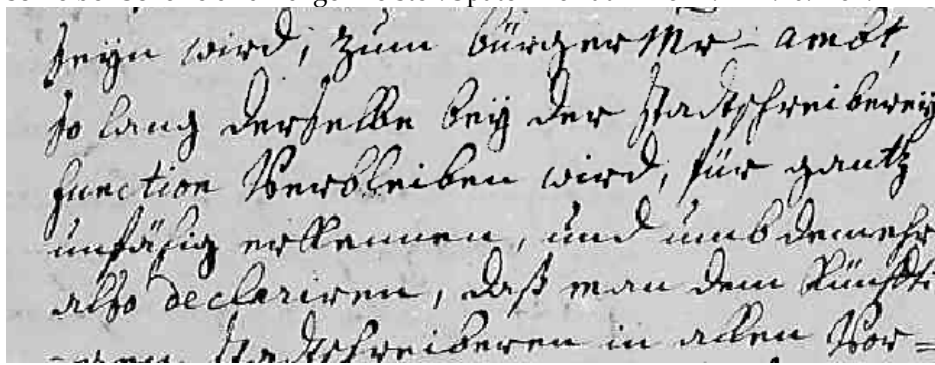 seyn wird, zum bürgerMr- ambt,
so lang derselbe bey der stadtschreiberey
function Verbleiben wird, für gantz
unfähig erkennen, und umb demehr
also declariren, daß man dem Künffti
=gen stadtschreiberen in allen Vor=